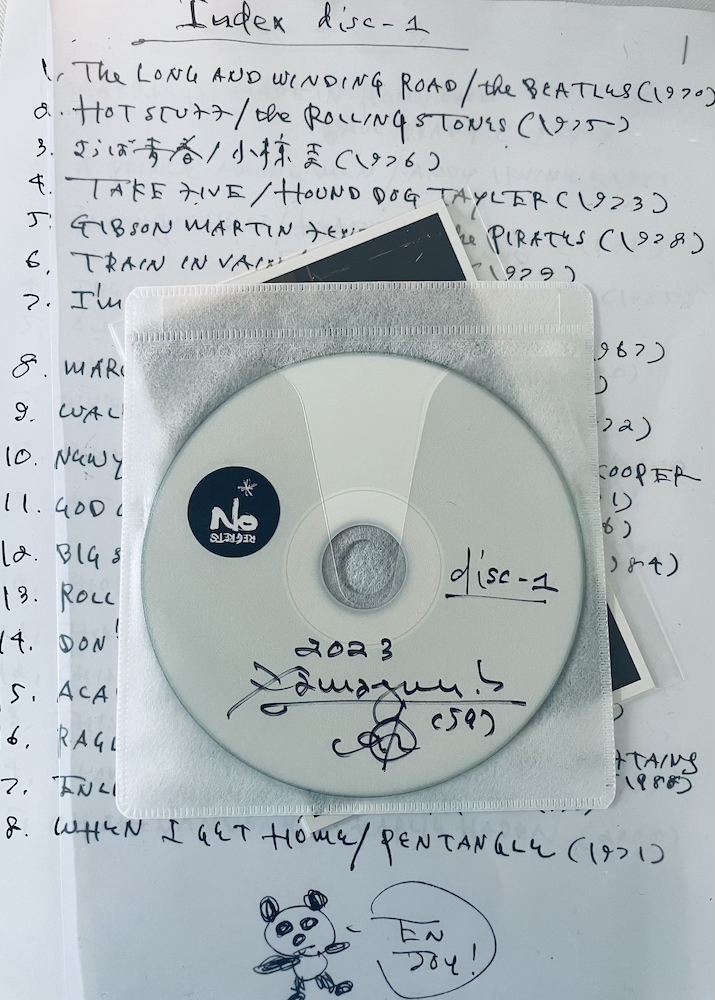 Index disc-1
1
1. THE LONG AND WINDING ROAD/the BEATLES (1970)
2. HOT STUFF/the ROLLING STONES (1975)
3. 青春/小椋 (1976)
4. TAKE FIVE/HOUND DOG TAYLER (1973)
5. GIBSON MARTIN PIRATES (1978)
6. TRAIN IN (1979)
7. I'm
8. 967)
9. 72)
10. COOPER
11. GOD 1)
6)
12. BIG 84)
13. ROLL
14. DON'
5.
6. TAINS
7. (1988)
8. WHEN I GET HOME/PENTANGLE (1971)
NO
REGRETS
disc-1
2023
(59)
EN
JOY!